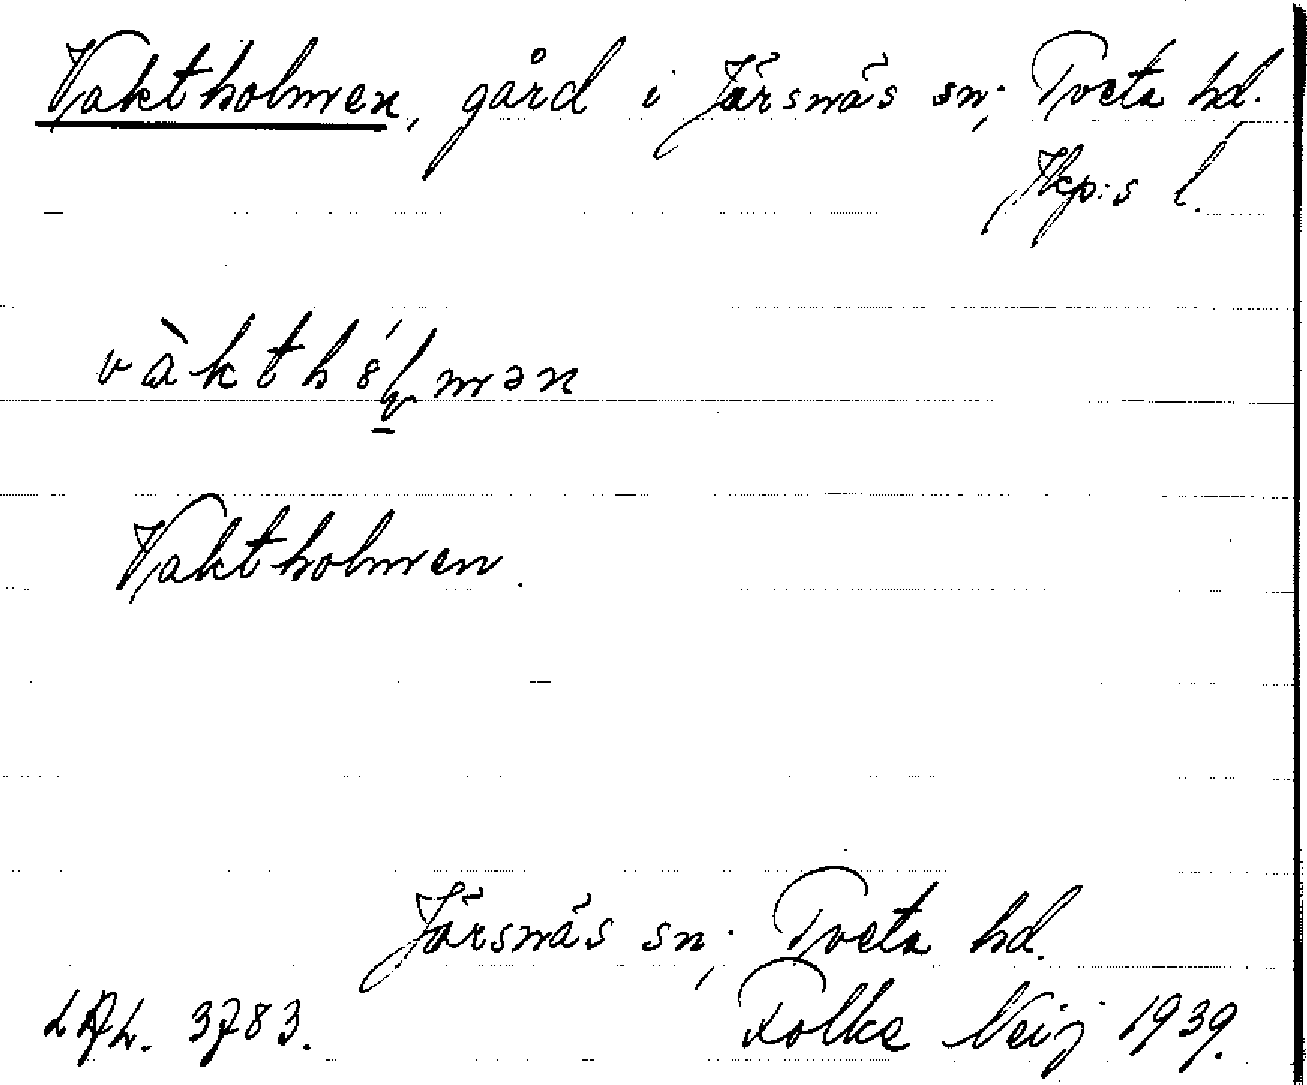 Vaktholmen, gård i Järsnäs sn; Tveta hd.
Jkp:s l.
Vaktholmen.
Järsnäs sn; Tveta hd.
3783. Folke Neij 1939.